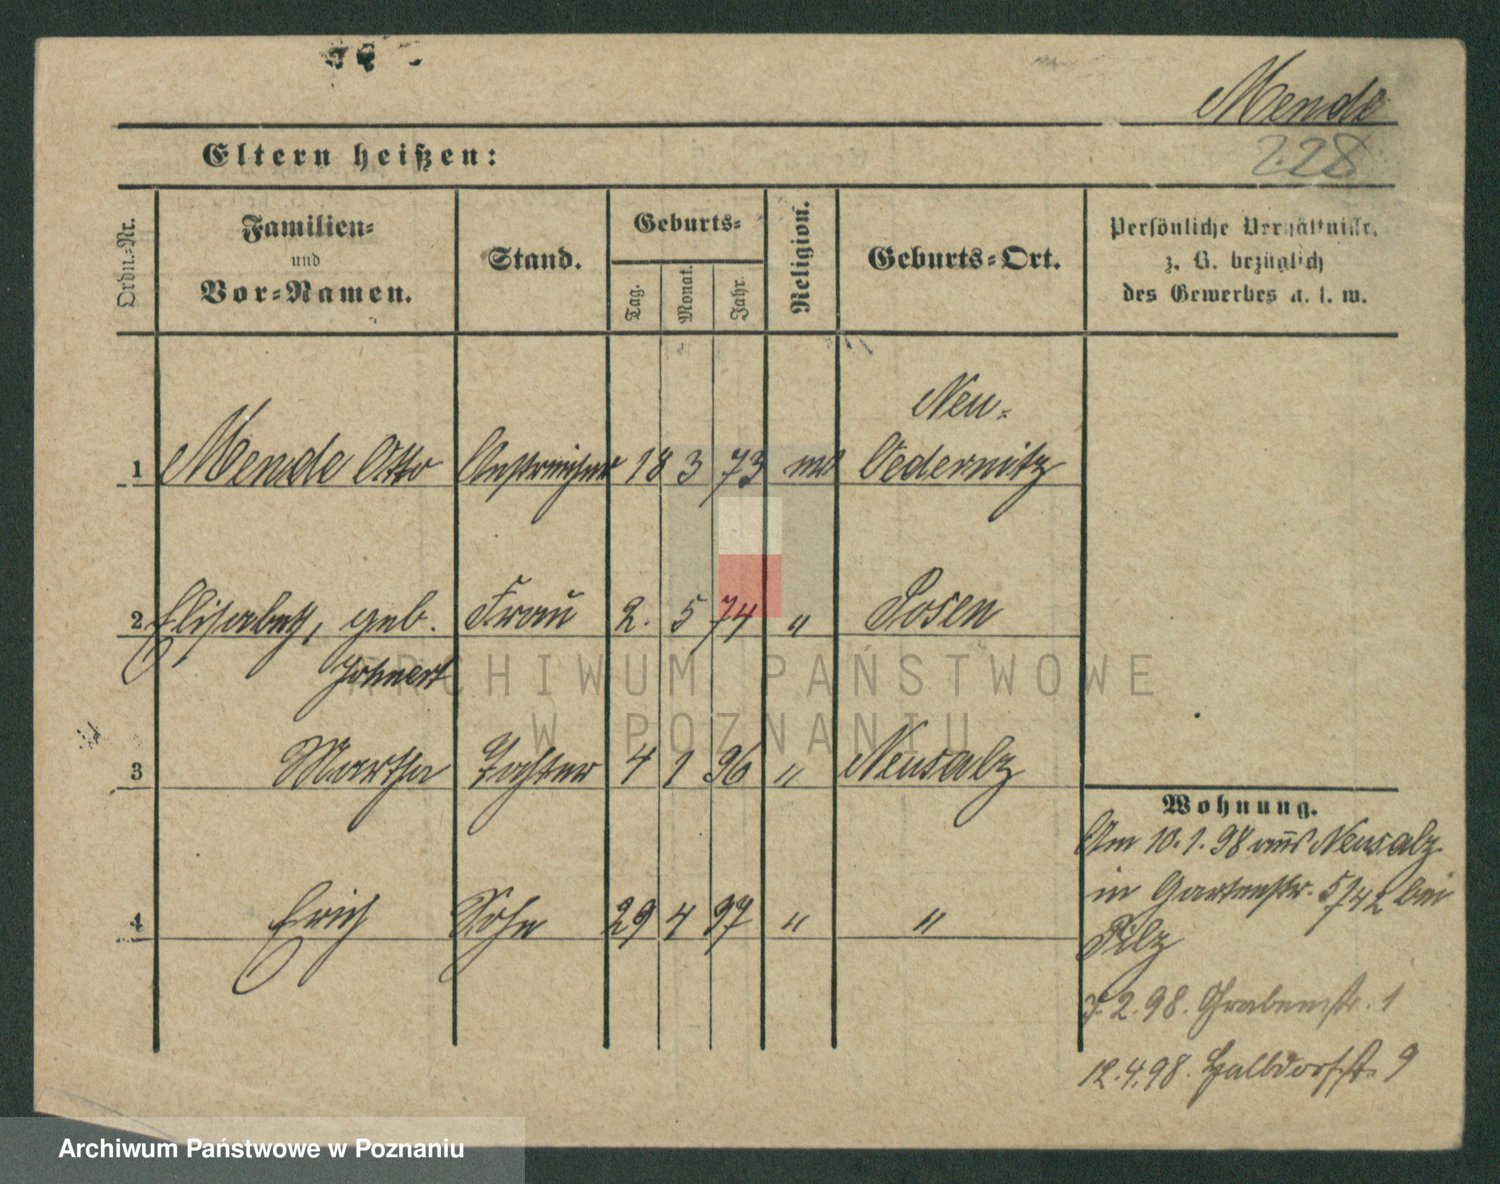 Mende
228
Eltern heißen:
Ordn.-Nr.
Familien-
und
Vor-Namen.
Stand.
Geburts-
Tag.
Monat.
Jahr.
Religion.
Geburts-Ort.
Persönliche Verhältnisse,
z. B. bezüglich
des Gewerbes u. s. w.
Neu-
1 Mende Otto Anstreicher 18 3 73 Oedernitz
2 Elisabeth, geb. Frau 2. 5 74 " Posen
ARCHIWUM PAŃSTWOWE
W POZNANIU
3 Martha Tochter 4 1 96 " Neusalz
4 Erich Sohn 29 4 97 " "
Wohnung.
Am 10.1.98 aus Neusalz
in Gartenstr. 5/42 bei
Pilz
7.2.98. Grabenstr. 1
12.4.98. Halbdorfstr. 9
Archiwum Państwowe w Poznaniu